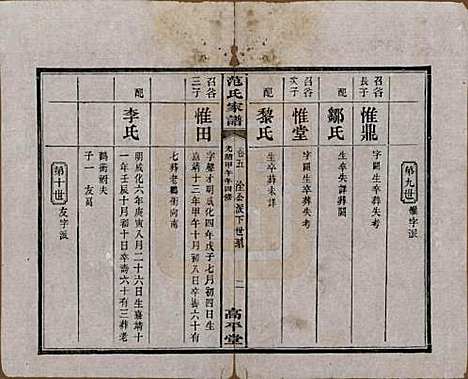 第九世
惟字派
召谷
長子
惟鼎
字闕生卒葬失考
配
鄒氏
生卒失詳葬闕
召谷
次子
惟堂
字闕生卒葬失考
配
黎氏
生卒葬未詳
范氏家譜
卷五
淦公派下世系
光緒甲午年四修
二
高平堂
召谷
三子
惟田
字馨才明成化四年戊子七月初四日辰時生
靖十三年甲午十月初十日卒壽六十有
七葬老鸛衝向南
配
李氏
明成化六年庚寅八月二十六日生嘉靖十
一年壬辰十月初十日卒壽六十有三葬老
鸛衝祔夫
子一友萬
第十世
友字派